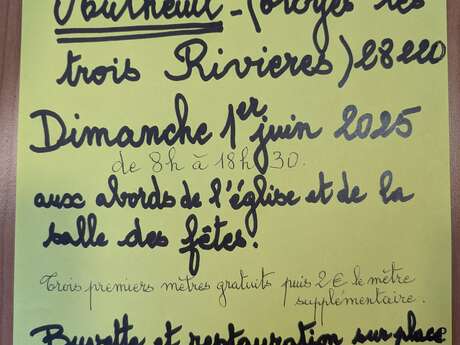 (Cloyes les
trois Rivieres) 28220
Dimanche 1er juin 2025
de 8h à 18h30.
aux abords de l'église et de la
salle des fêtes.
Trois premiers mètres gratuits puis 2€ le mètre
supplémentaire.
Buvette et restauration sur place